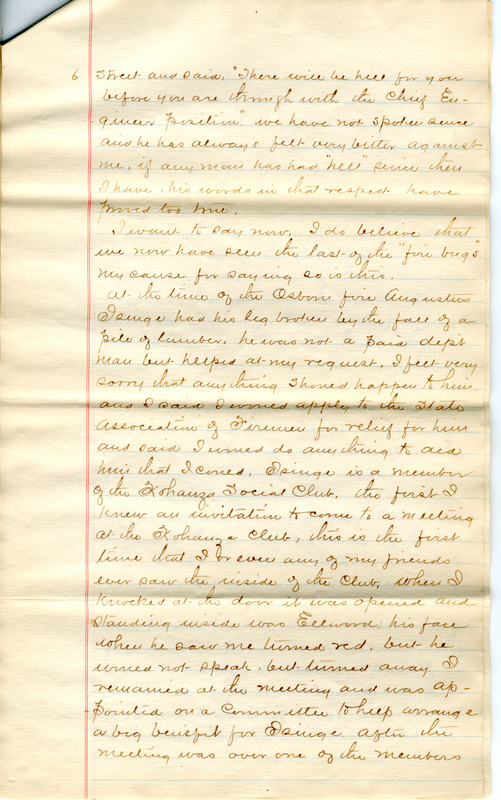 6 Street and said, "There will be hell for you
before you are through with the Chief En-
gineer position" we have not spoken since
and he has always felt very bitter against
me, if any man has had "hell" since then
I have, his words in that respect have
proved too true.
I want to say now, I do believe that
we now have seen the last of the "fire bugs"
my cause for saying so is this.
At the time of the Osborn fire Augustus
Isinge had his leg broken by the fall of a
pile of lumber, he was not a paid dep't
man but helped at my request, I felt very
sorry that anything should happen to him
and I said I would apply to the State
Association of Firemen for relief for him
and said I would do anything to aid
him that I could, Isinge is a member
of the Kohanza Social Club, the first I
knew an invitation to come to a meeting
at the Kohanza Club, this is the first
time that I or even any of my friends
ever saw the inside of the Club, when I
knocked at the door it was opened and
standing inside was Ellwood, his face
when he saw me turned red, but he
would not speak, but turned away I
remained at the meeting and was ap-
pointed on a Committee to help arrange
a big benefit for Isinge after the
meeting was over one of the members